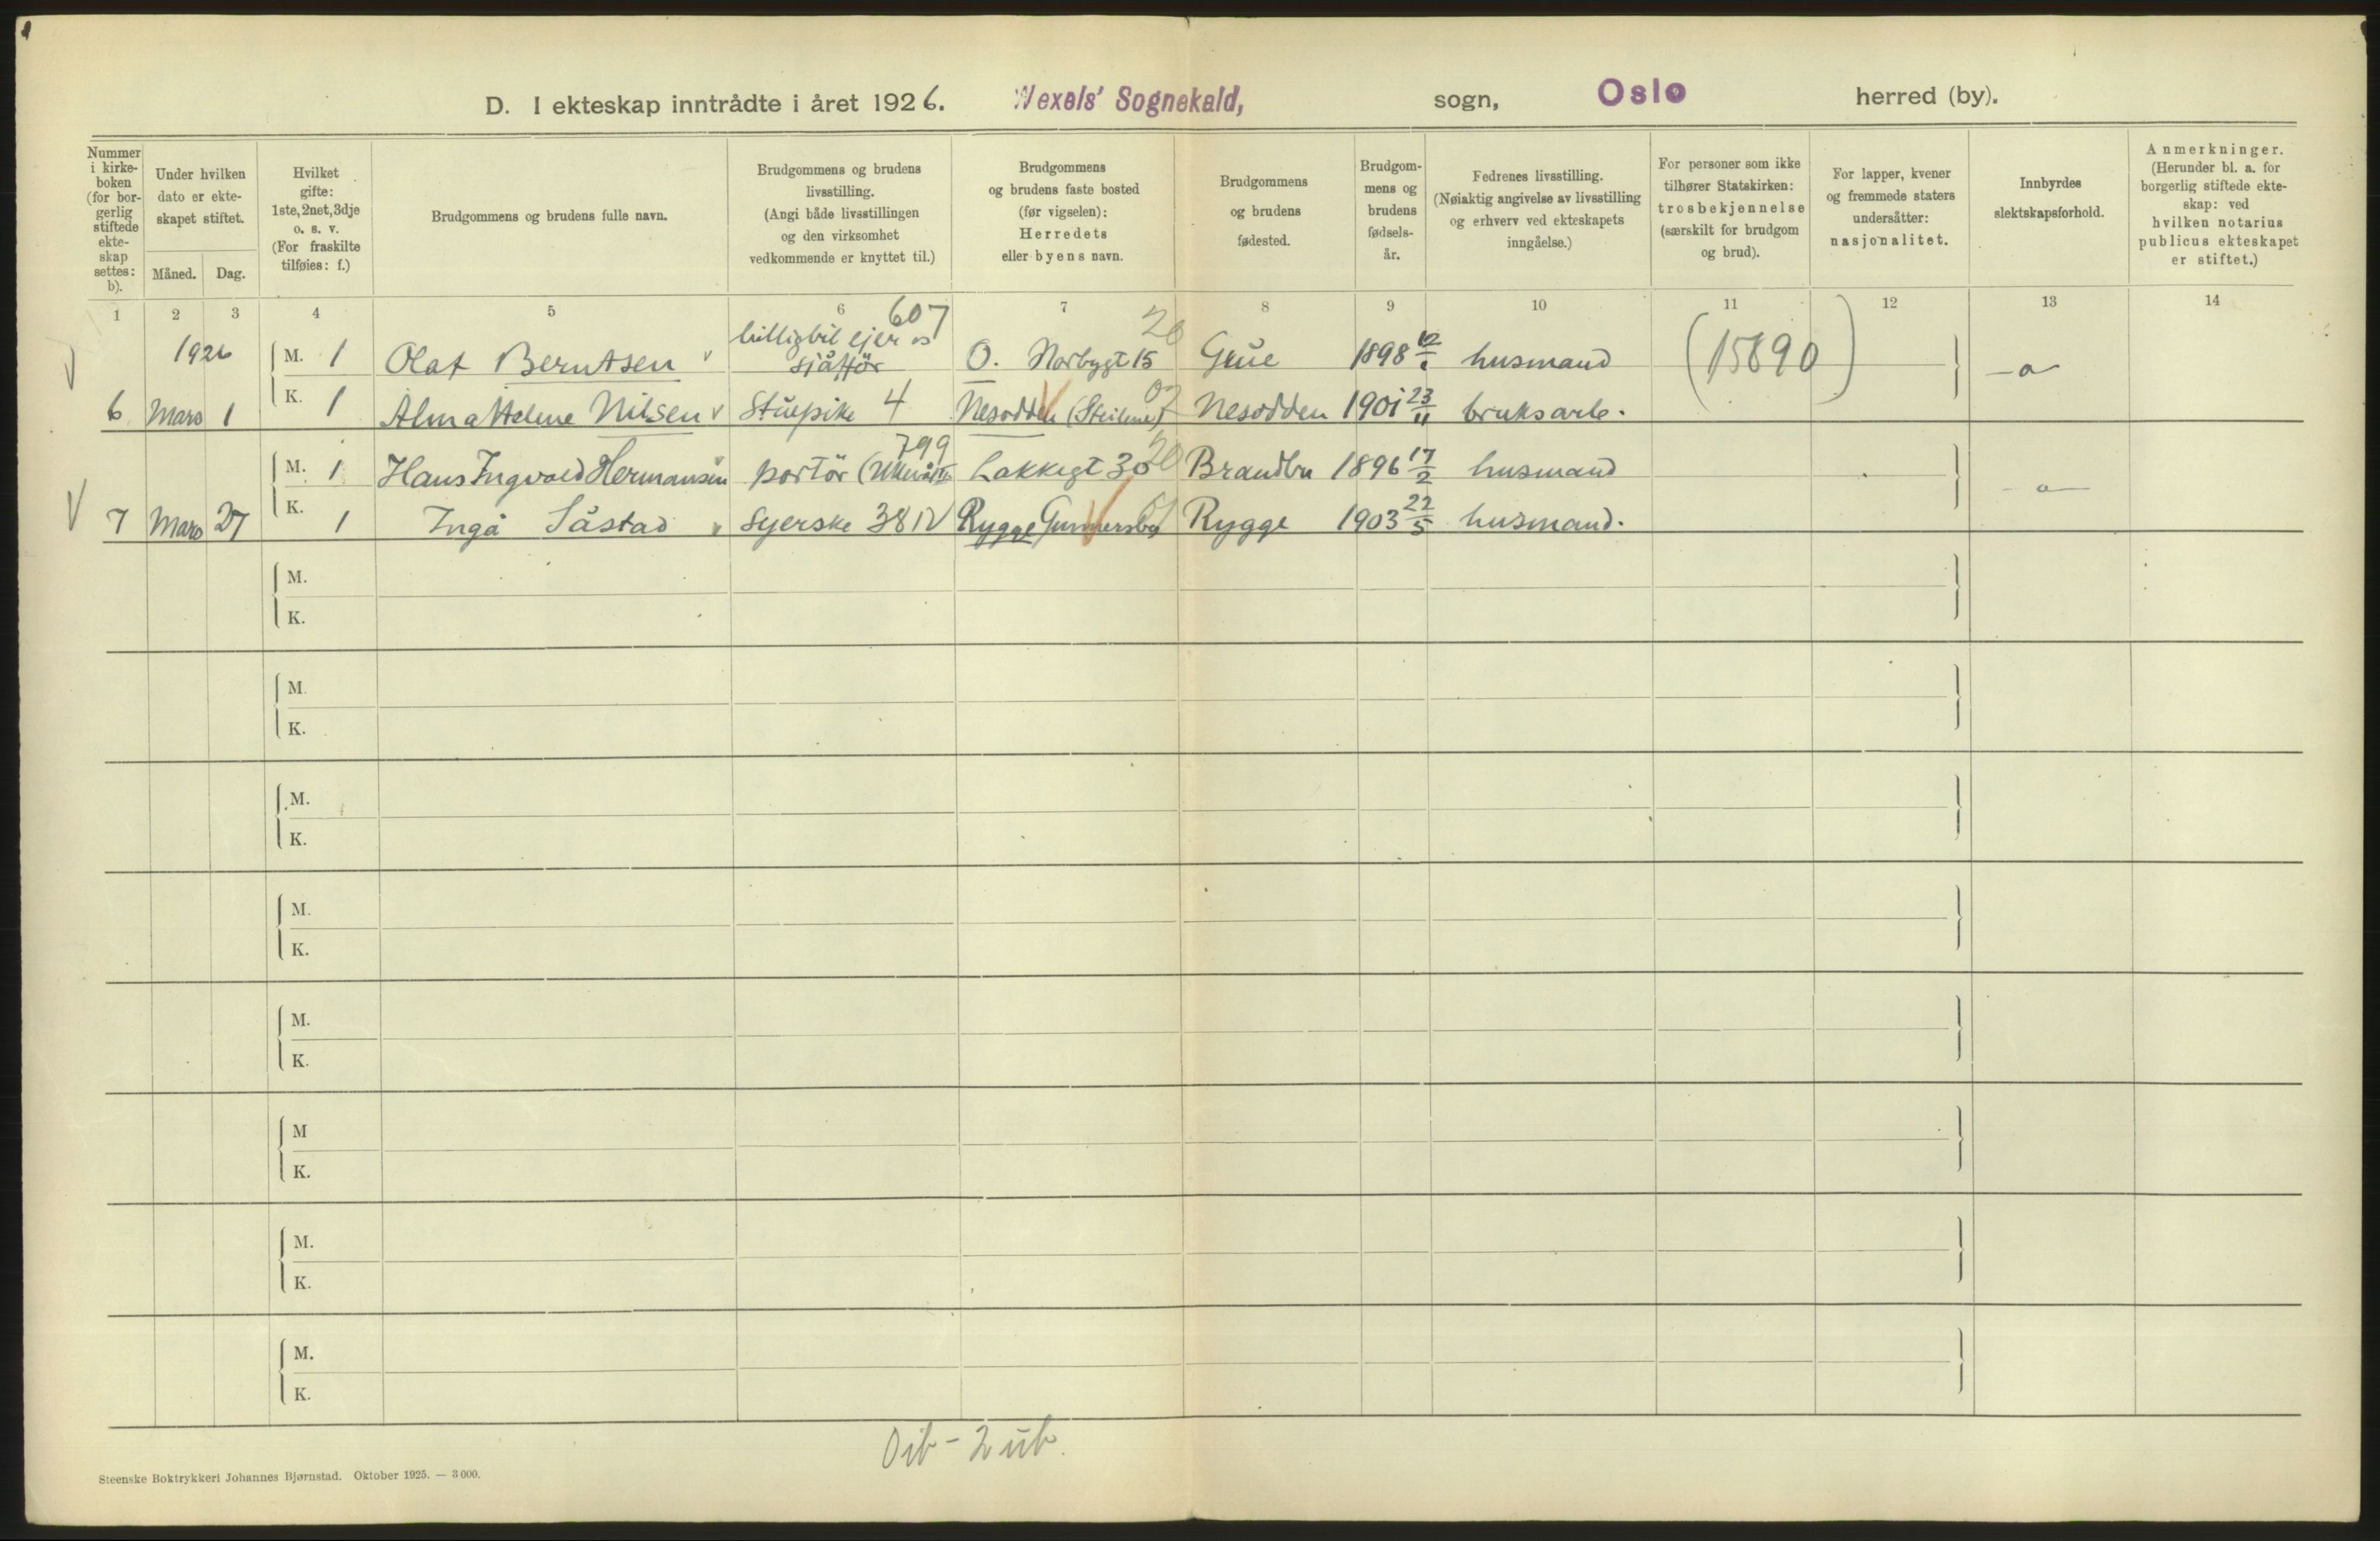 D. I ekteskap inntrådte i året 1926. Wexels' Sognekald, sogn, Oslo herred (by).
Nummer i kirke-boken (for bor-gerlig stiftede ekte-skap settes: b).
Under hvilken dato er ekte-skapet stiftet.
Måned. Dag.
Hvilket gifte: 1ste, 2net, 3dje o. s. v. (For fraskilte tilføies: f.)
Brudgommens og brudens fulle navn.
Brudgommens og brudens livsstilling. (Angi både livsstillingen og den virksomhet vedkommende er knyttet til.)
Brudgommens og brudens faste bosted (før vigselen): Herredets eller byens navn.
Brudgommens og brudens fødested.
Brudgom-mens og brudens fødsels-år.
Fedrenes livsstilling. (Nøiaktig angivelse av livsstilling og erhverv ved ekteskapets inngåelse.)
For personer som ikke tilhører Statskirken: trosbekjennelse (særskilt for brudgom og brud).
For lapper, kvener og fremmede staters undersåtter: nasjonalitet.
Innbyrdes slektskapsforhold.
Anmerkninger. (Herunder bl. a. for borgerlig stiftede ekte-skap: ved hvilken notarius publicus ekteskapet er stiftet.)
1 2 3 4 5 6 7 8 9 10 11 12 13 14
607 20
1926 M. 1 Olaf Berntsen v billigbil ejer os sjåffør O. Norbygt 15 Grue 1898 husmand (15890) - a -
6 Mars 1 K. 1 Alma Helene Nilsen v Stuepike 4 Nesodden (Steilene) 02 Nesodden 1901 23/11 bruksarb.
799 20
M. 1 Hans Ingvald Hermansen portör Lakkegt 30 Brandbu 1896 17/2 husmand
7 Mars 27 K. 1 Inga Såstad v Syerske 38 IV Rygge Gunnersby 01 Rygge 1903 22/5 husmand. - a -
M.
K.
M.
K.
M.
K.
M.
K.
M.
K.
M
K.
M.
K.
M.
K.
Oib - 2 ub.
Steenske Boktrykkeri Johannes Bjørnstad. Oktober 1925. — 3 000.